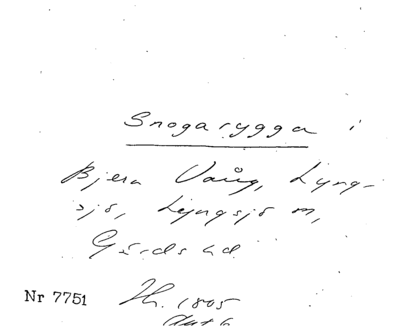 Snogarygga i
Bjera Vång, Lyng-
sjö, Lyngsjö m,
Gärds hd.
Nr 7751 Th. 1805